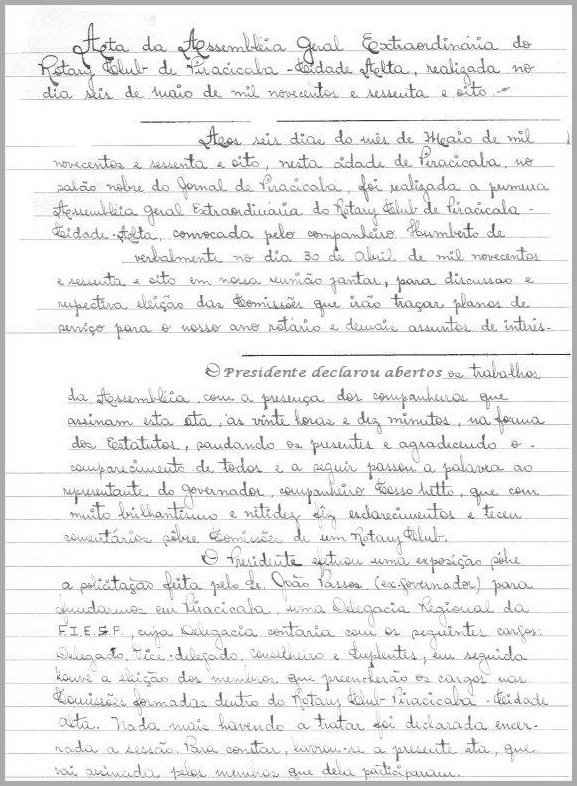 Acta da Assembléia Geral Extraordinária do
Rotary Club de Piracicaba - Cidade Alta, realizada no
dia seis de maio de mil novecentos e sessenta e oito. -
Aos seis dias do mês de Maio de mil
novecentos e sessenta e oito, nesta cidade de Piracicaba, no
salão nobre do Jornal de Piracicaba, foi realizada a primeira
Assembléia Geral Extraordinária do Rotary Club de Piracicaba -
Cidade - Alta, convocada pelo companheiro Humberto de
verbalmente no dia 30 de Abril de mil novecentos
e sessenta e oito em nossa reunião jantar, para discussão e
respectiva eleição das Comissões que irão traçar planos de
serviço para o nosso ano rotário e demais assuntos de interês-
O Presidente declarou abertos os trabalhos
da Assembléia, com a presença dos companheiros que
assinam esta ata, às vinte horas e dez minutos, na forma
dos Estatutos, saudando os presentes e agradecendo o -
comparecimento de todos e a seguir passou a palavra ao
representante do governador, companheiro Cosso Netto, que com
muito brilhantismo e nitidez fêz esclarecimentos e teceu
comentários sôbre Comissões de um Rotary Club.
O Presidente uma exposição sôbre
a solicitação feita pelo Sr. João Passos (ex-governador) para
fundarmos em Piracicaba, uma Delegacia Regional da
F.I.E.S.P., cuja Delegacia contaria com os seguintes cargos:
Delegado, Vice-delegado, conselheiro e suplentes, em seguida
houve a eleição dos membros que preencherão os cargos nas
Comissões formadas dentro do Rotary Club Piracicaba - Cidade
Alta. Nada mais havendo a tratar foi declarada encer-
rada a sessão. Para constar, lavrou-se a presente ata, que
vai assinada pelos membros que dela participaram.